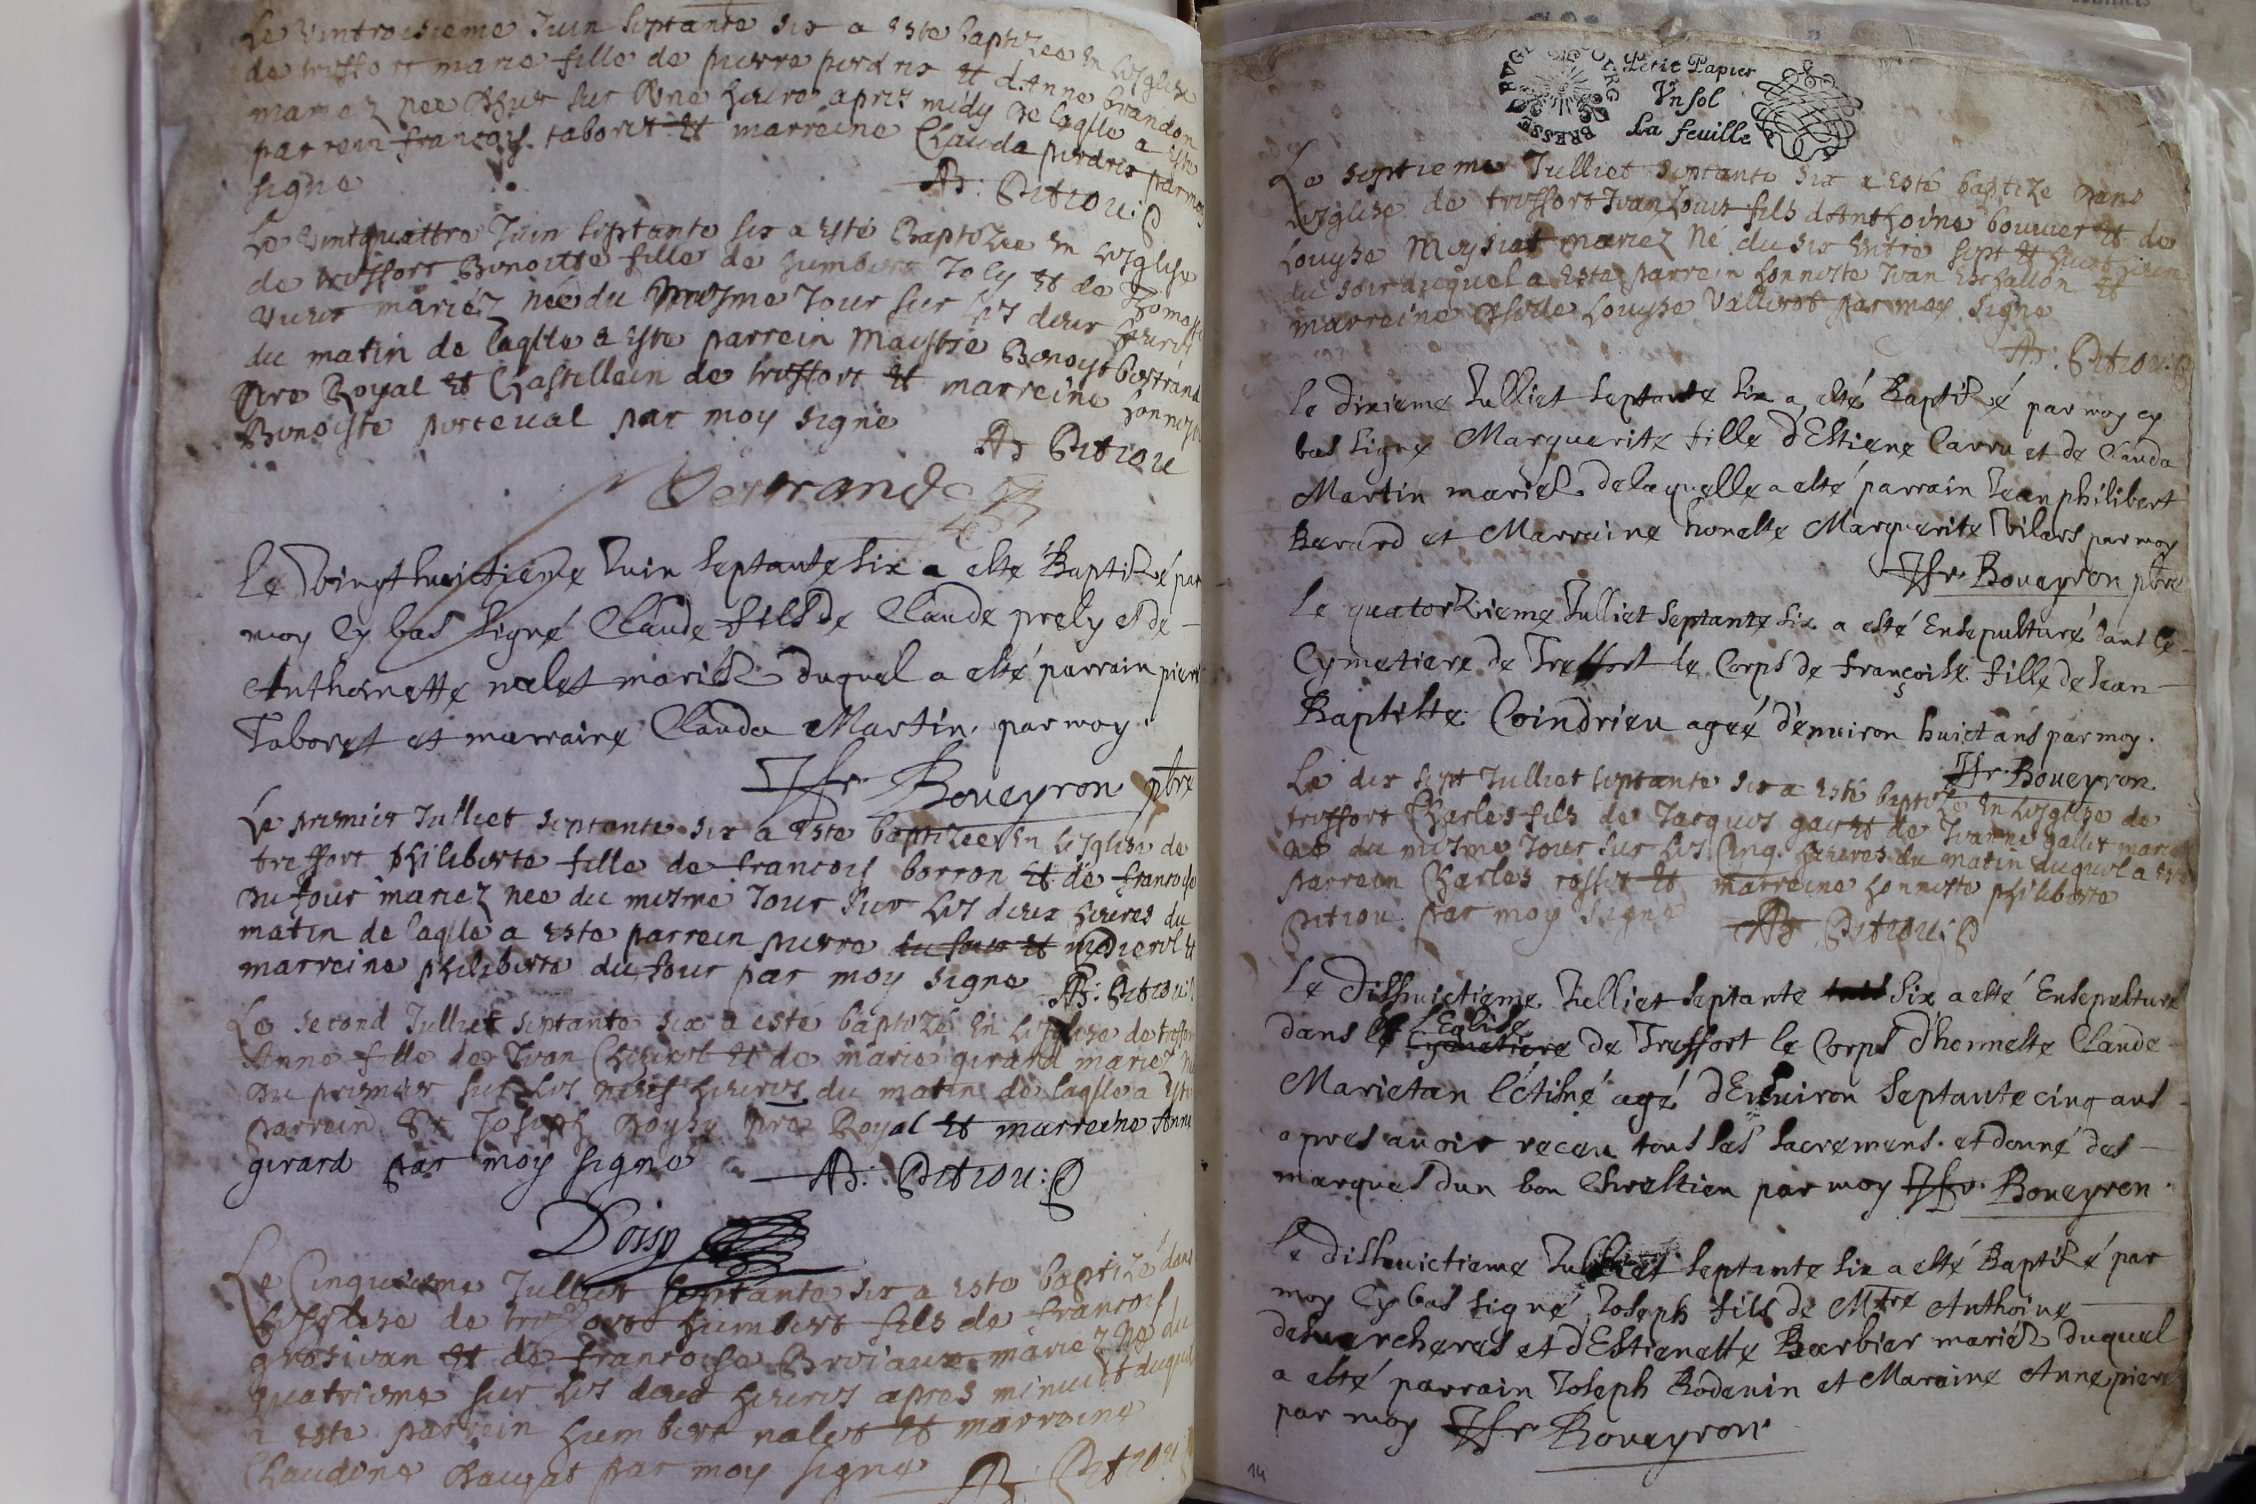 Le vintroisieme Juin septante six a esté baptizee en Lesglise
de treffort marie fille de pierre perdrix et d'Anne brandon
mariez nee sur une heure apres midy de laqlle a esté
parrein françois taboret et marreine Clauda perdrix par moy
signe
Le vintquattre Juin septante six a esté Baptizee en Lesglise
de treffort Benoitte fille de humbert Joly et de Thomasse
mariez née du mesme Jour sur les deux heures
du matin de laqlle a esté parrein Maystre Benoyst Bertrand
Royal et Chastellein de treffort et marreine honneste
Benoiste perceval par moy signé
Petiou
Bertrand
Le vingthuictieme Juin septante six a esté Baptizé par
moy Cy bas signé Claude fils de Claude prely et de
Anthoinette nalet mariéz duquel a esté parrain pierre
Taboret et marraine Clauda Martin. par moy.
Jfr Boueyron pbre
Le premier Julliet septante six a esté baptizee en Lesglise de
treffort philiberte fille de françois borron et de françoise
Dufour mariez nee du mesme Jour sur Les deux heures du
matin de laqlle a esté parrein pierre du four et et
marreine philiberte dufour par moy signe Petiou
Le second Julliet septante six a esté baptizé en Lesglise de treffort
Anne fille de Jvan et de marie girard mariez
du premier sur Les neuf heures du matin de laqlle a esté
parrein Sr Joseph Royal et marreine Anne
girard par moy signe Petiou
Doisy
Le Cinquiesme Julliet septante six a esté baptizé dans
Lesglise de treffort humbert fils de françois
grosivan et de françoise mariez né du
quatrieme sur Les deux heures apres minuict duquel
a esté parrein humbert nalet et marreine
Claudine par moy signe Petiou
BOURG BRESSE
Petit Papier
Vn sol
La feuille
Le septieme Julliet septante six a esté baptize dans
Lesglise de treffort Jvan Louis fils d'Anthoine bouuier et de
Louyse Moysiat mariez né du six entre sept et huict heures
du soir duquel a esté parrein honneste Jvan Eschallon et
marreine Louyse Vallerot par moy signe
Petiou
Le dixieme Julliet septante six a esté Baptizé par moy cy
bas signé Marguerite fille d'Estiene Carru et de Clauda
Martin mariez. de laquelle a esté parrain Jean philibert
Berard et Marraine honeste Marguerite Vilars par moy
Jfr Boueyron pbre
Le quatorzieme Julliet septante six a esté Ensepulturé dans le
Cymetiere de Treffort le Corps de françoise fille de Jean
Baptiste Coindrieu ageé d'enuiron huict ans par moy.
Jfr. Boueyron
Le dix sept Julliet septante six a esté baptizé en Lesglise de
treffort Charles fils de Jacques gay et de Jvanne gallet mariez
né du mesme Jour sur Les Cinq heures du matin duquel a esté
parrein Charles rosset et marreine honneste philiberte
Petiou par moy signe Petiou
Le dishuictieme Julliet septante six a esté Ensepulturé
dans l'Eglise Cymetiere de Treffort le Corps d'honneste Claude
Marietan agé d'Enuiron septante cinq ans
apres auoir receu tous les sacremens. et donné des
marques dun bon Chrestien par moy Jfr. Boueyron.
Le dishuictieme Julliet septante six a esté Baptizé par
moy Cy bas signé Joseph fils de Mtre Anthoine
demarcheres et d'Estienette Barbier mariéz duquel
a esté parrain Joseph Bodeuin et Maraine Anne piere
par moy Jfr Boueyron
14